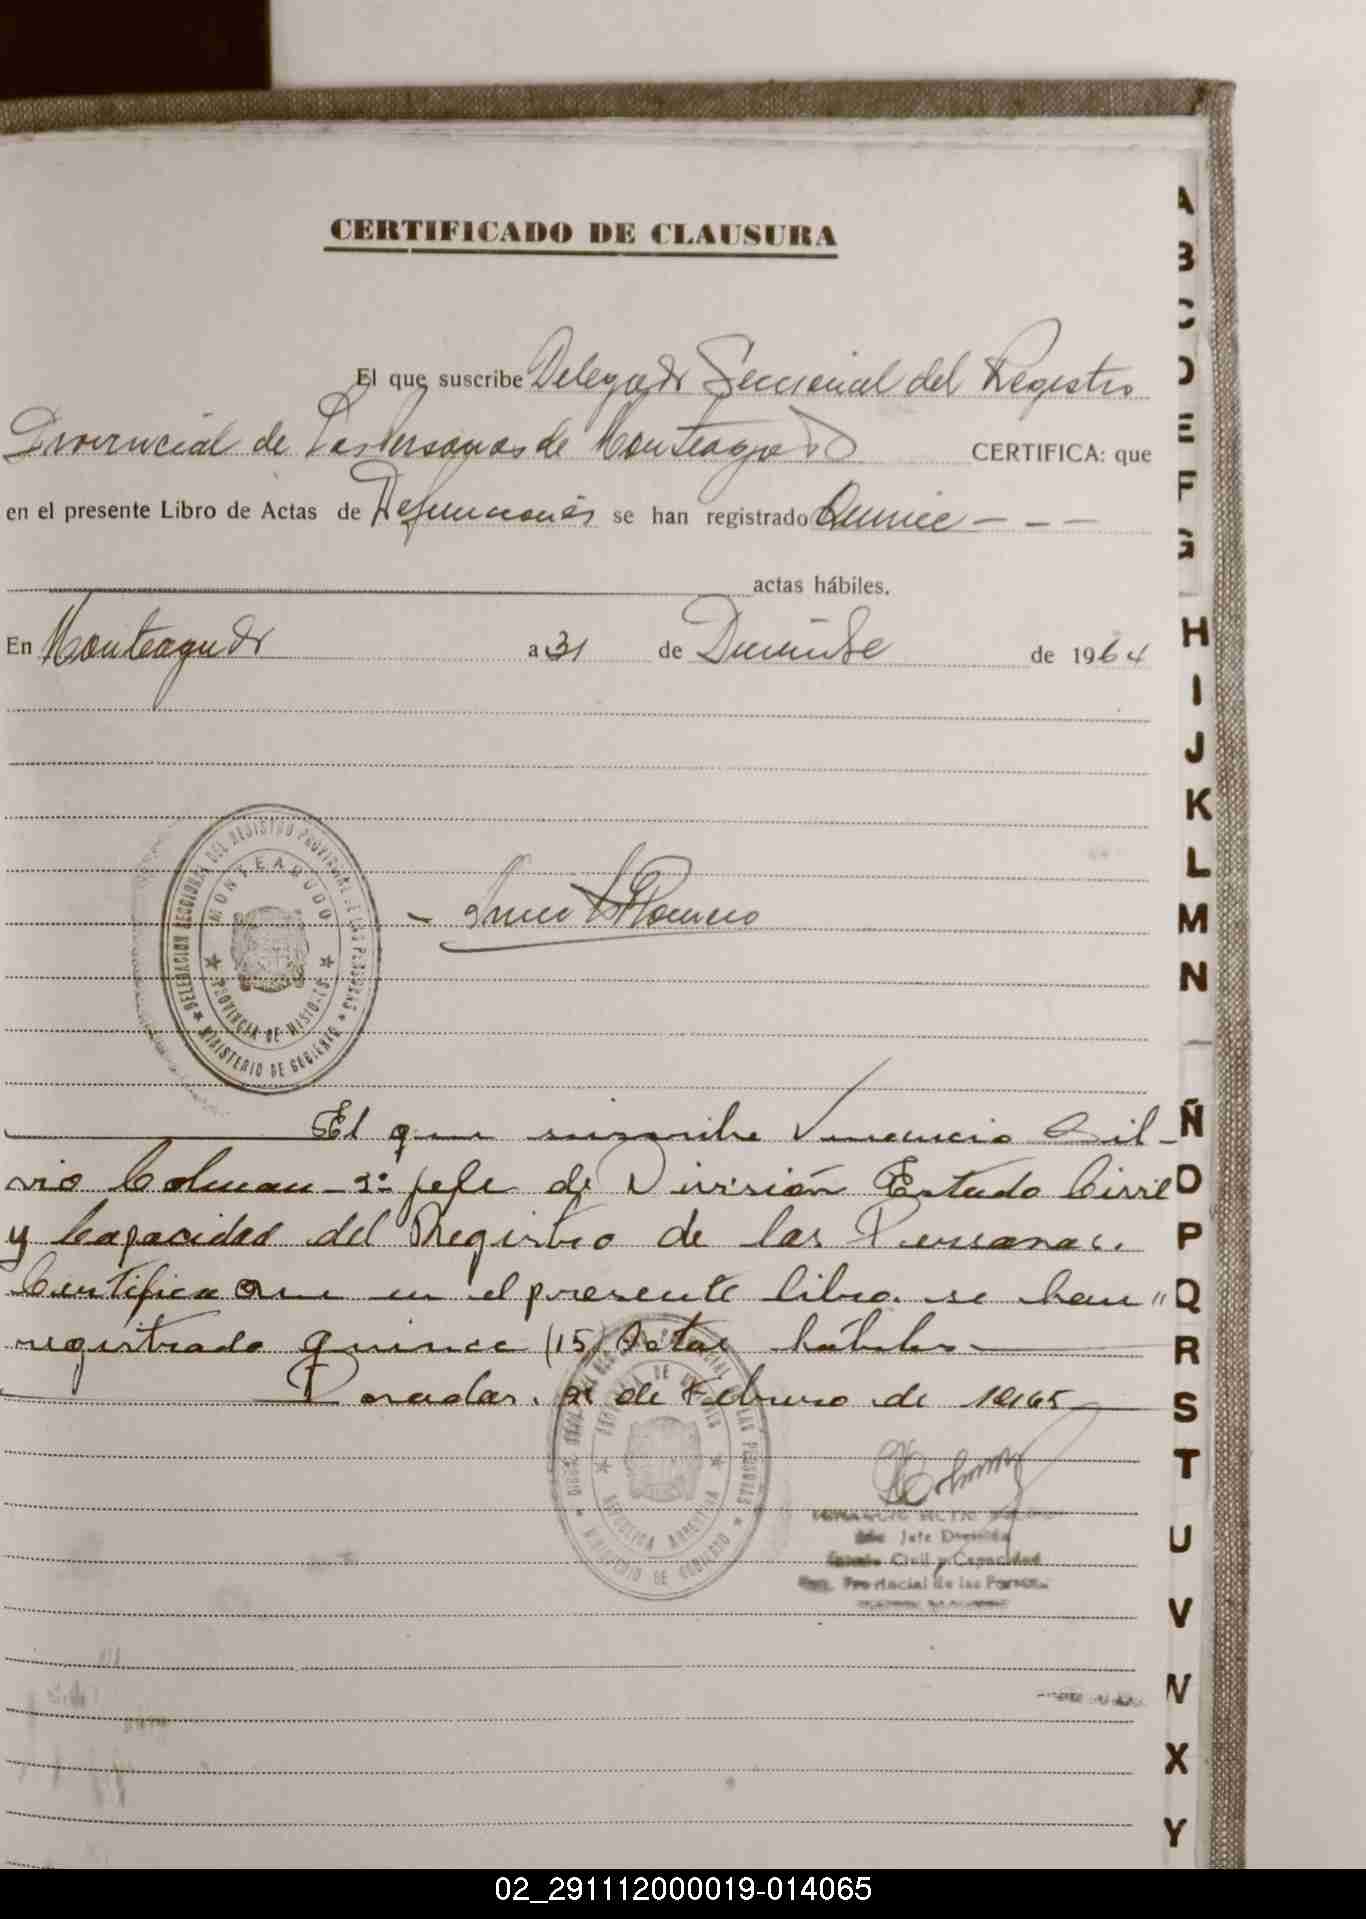 CERTIFICADO DE CLAUSURA
El que suscribe Delegado Seccional del Registro
Provincial de las Personas de Monteagudo CERTIFICA: que
en el presente Libro de Actas de Defunciones se han registrado Quince - - -
actas hábiles.
En Monteagudo a 31 de Diciembre de 1964
DELEGACION SECCIONAL DEL REGISTRO PROVINCIAL DE LAS PERSONAS
MONTEAGUDO
PROVINCIA DE MISIONES
MINISTERIO DE GOBIERNO
Romero
El que suscribe Venancio Sil-
vio Colman 2º jefe de División Estado Civil
y Capacidad del Registro de las Personas.
Certifica Que en el presente libro se han "
registrado quince (15) Actas hábiles
Posadas, de Febrero de 1965
LAS PERSONAS
REPUBLICA ARGENTINA
MINISTERIO DE GOBIERNO
Jefe División
Civil y Capacidad
Provincial de las
A
B
C
D
E
F
G
H
I
J
K
L
M
N
Ñ
O
P
Q
R
S
T
U
V
W
X
Y
02_291112000019-014065